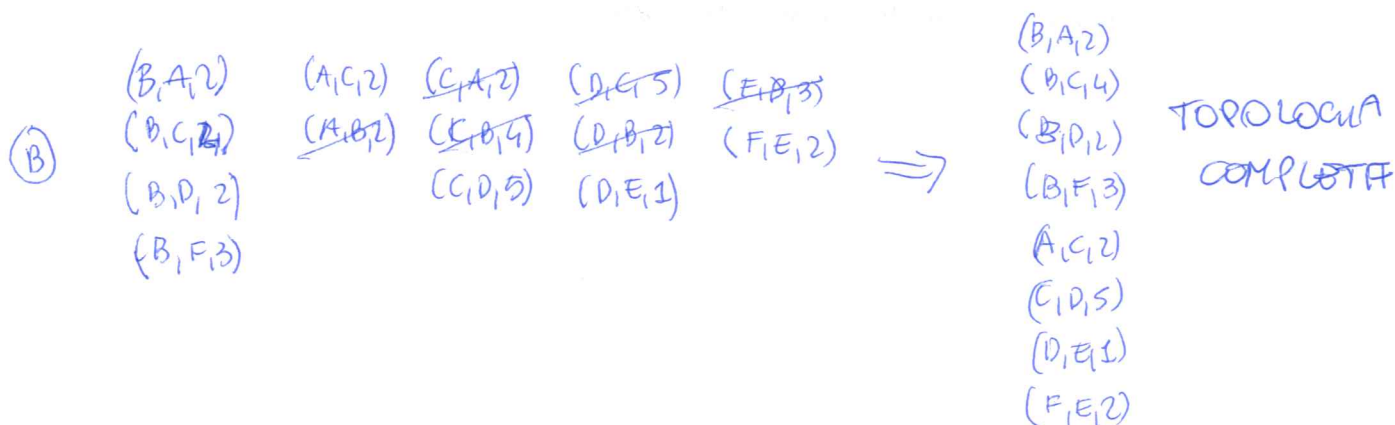 (B,A,2)
(B,C,4)
(B,D,2)
(B,F,3)
Ⓑ
(A,C,2)
(A,B,2)
(C,A,2)
(C,B,4)
(C,D,5)
(D,C,5)
(D,B,2)
(D,E,1)
(F,B,3)
(F,E,2)
⇒
(B,A,2)
(B,C,4)
(B,D,2)
(B,F,3)
(A,C,2)
(C,D,5)
(D,E,1)
(F,E,2)
TOPOLOGIA
COMPLETA